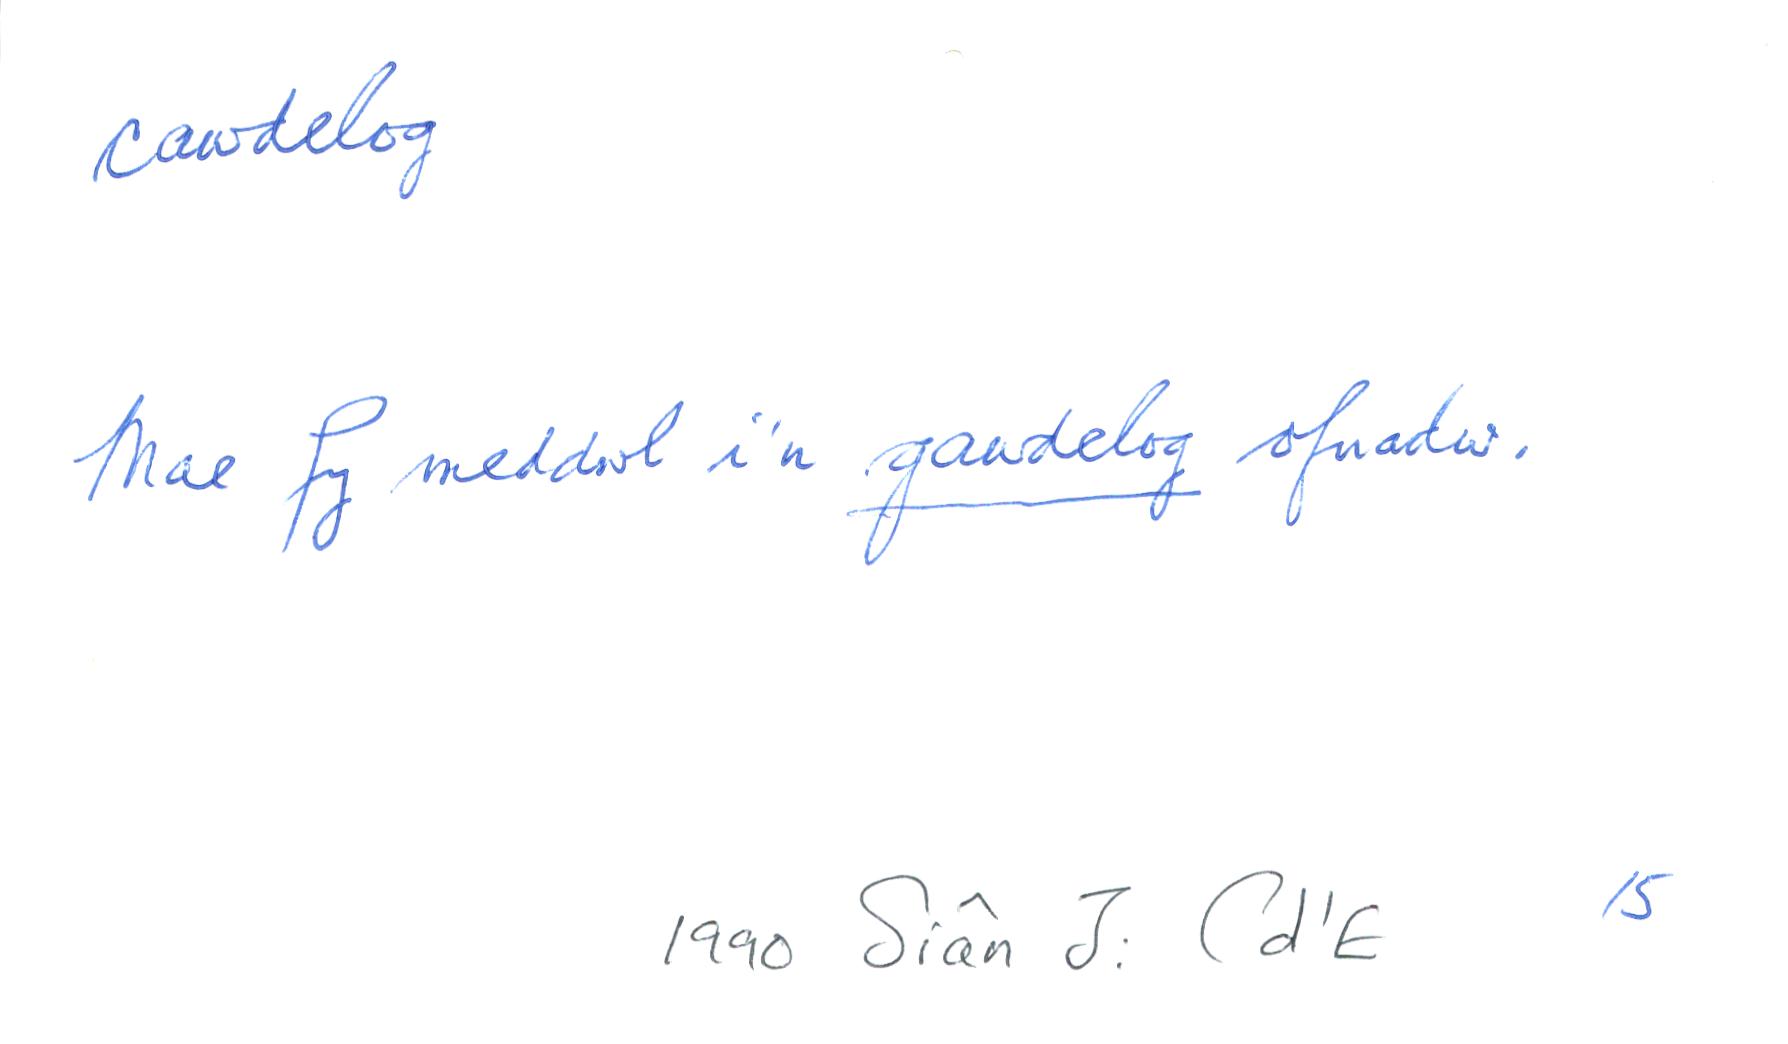 cawdelog
Mae fy meddwl i'n gawdelog ofnadw.
1990 Siân J: Cd'E 15